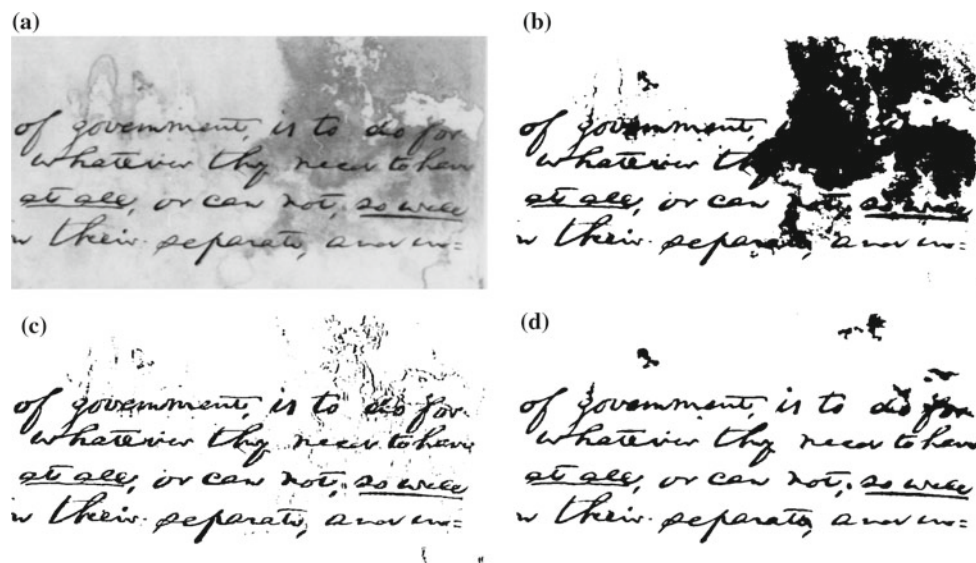 (a)
of government, is to do for
whatever they need to have
at all, or can not, so well
their separate, and in=
(b)
of government,
whatever
at all, or can so well
their separate, and in=
(c)
of government, is to do for
whatever they need to have
at all, or can not, so well
their separate, and in=
(d)
of government, is to do for
whatever they need to have
at all, or can not, so well
their separate, and in=